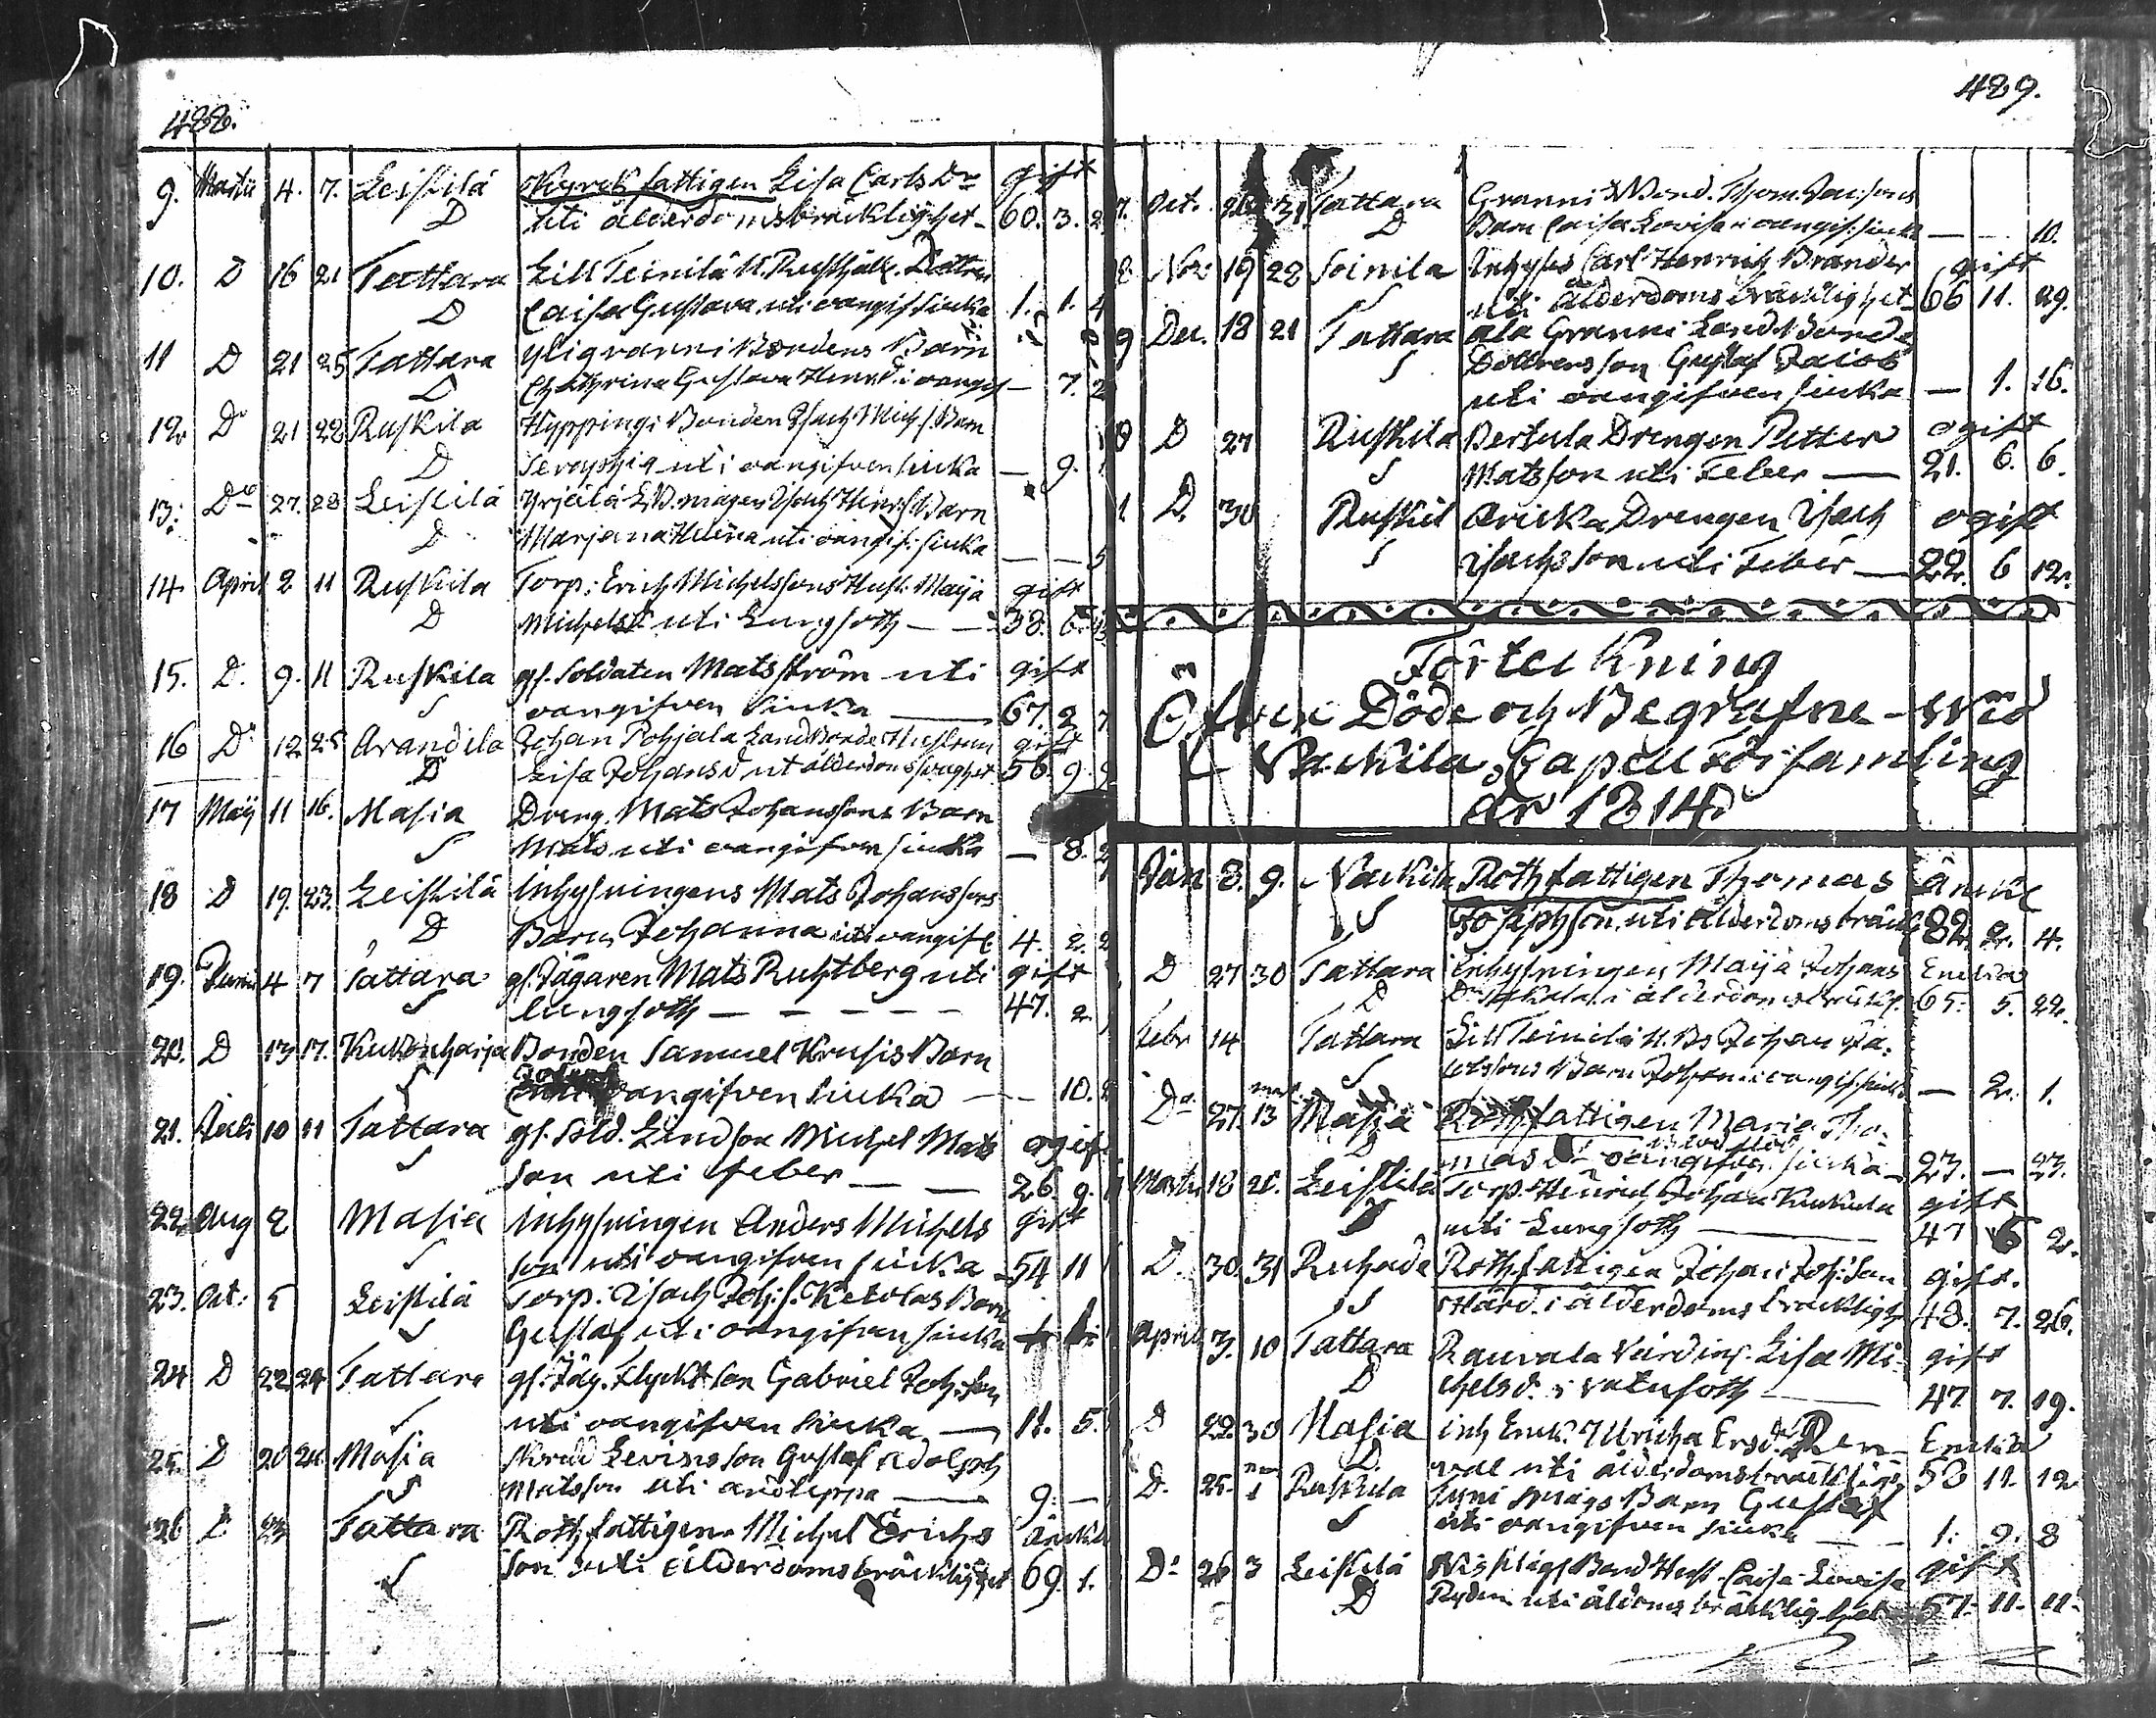 488.
9. Martii 4. 7. Leistilä Kyrck fattigen Lisa Carls Dr gift
D uti ålderdomsbräcklighet - 60. 3. 2
10. D 16 21 Tattara Lill Teinilä Dottren
D Caisa Gustava uti oangif siuka 1. 1. 4
11 D 21 25 Tattara Yligranni Bondens Barn
D Chathrina Gustava Henrd. i oangif - 7. 2
12 Do 21 22 Ruskila Hyppingi Bonden Isach Mich: Barn
D Seraphia uti oangifven siuka - 9.
13. Do 27. 28 Leistilä Yrjeilä Isach Hinr: Barn
D Marjana Helena uti oangif: siuka - - 5
14 April 2 11 Ruskila Torp: Erich Michelssons Hust. Maija gift
D Michelsd. uti Lungsoth - - 38. 6.
15. D. 9. 11 Ruskila gf. Soldaten Mats Ström uti gift
S oangifven siuka - 67. 2 7
16 Do 12 25 Arandila Johan Pohjala Landbonde Hustrun gift
D Lisa Johansd ut ålderdomssvaghet 56. 9. 9
17 Maij 11 16. Masia Dreng. Mats Johanssons Barn
S Mats uti oangifven siuka - 8. 2
18 D 19. 23. Leistilä Inhysningens Mats Johanssons
D Barn Johanna uti oangif. 4. 2. 2
19. Junii 4 7 Tattara gf. Jägaren Mats Rustberg uti gift
S lungsoth - - - - - 47. 2.
20. D 13 17. Kukonharja Bonden Samuel Krusis Barn
S oangifven siuka - 10. 2
21. Julii 10 11 Tattara gf. Sold. Lindson Michel Mats ogift
S son uti feber - - 26. 9.
22. Aug 2 Masia Inhysningen Anders Michels gift
S son uti oangifven siuka - 54 11
23. Oct: 5 Leistilä Torp. Isach Joh: s. Ketolas Barn
S Gustaf uti oangifven siuka
24 D 22 24 Tattara gf. Jäg. Flyckt son Gabriel Joh: son
S uti oangifven siuka - 11. 5.
25. D 20 24. Masia Skrädd Levins son Gustaf Adolph
S Matsson uti andteppa - 9. -
26 D 23 Tattara Rothfattigen Michel Erichs Änckl
S son uti ålderdomsbräcklighet 69. 1.
489.
7. Oct. 31 Tattara Granni Bond. Thom. Jac: sons
D Barn Caisa Lovisa i oangif: siuka - 10.
8. Nov 19 22 Soinila Inhyses Carl Henrich Brander gift
S uti ålderdoms bräcklighet 66 11. 29.
9 Dec. 18 21 Tattara ala Granni Land Bonde
S Dottrens son Gustaf Jacob
uti oangifven siuka - 1. 16.
10 D 27 Ruskila Bertula Drengen Petter ogift
S Matsson uti Feber - 21. 6. 6.
11. D. 30 Ruskil Ericka Drengen Isach ogift
S Isachsson uti Feber - 22. 6 12.
Förteckning
Öfver Döde och Begrafne wid
Nackila Capell Församling
År 1814.
Jan 8. 9. Nackila Rothfattigen Thomas Änckl
S Josephson uti ålderdoms bräckl 82. 2. 4.
D 27 30 Tattara Inhysningen Maija Johans Enckia
D Dr i ålderdoms bräckl. 65. 5. 22.
Febr 14 Tattara Lill Teinilä Johan Ja:
S cobssons Barn Johan i oangif: siuka - 2. 1.
Do 27. 13 Masia Rothfattigen Maria Tho:
D mas Dr oangifven siuka - 23. - 23.
Martii 18 20. Leistilä Torp. Henrich Johan Kuckula gift
S uti Lungsoth - 47 6 2.
D. 30. 31 Ruhade Rothfattigen Johan Joh: son gift.
S Hård. i ålderdoms bräckligh 48. 7. 26.
April 3. 10 Tattara Rauvala Värdins. Lisa Mi- gift
D chelsd. i vatusoth - 47. 7. 19.
D 22 30 Masia inh Enck. Ulricka Ersd. Enckia
D. uti ålderdomsbräckligh 58 11. 12
D. 25. 1 Ruskila Syni Mågs Barn Gustaf
S uti oangifven siuka - - 1. 9. 8
Do 26 3 Leistilä Bond Hust. Caisa Lovisa gift
D Ryden uti åldoms bräcklighet 57. 11. 11.